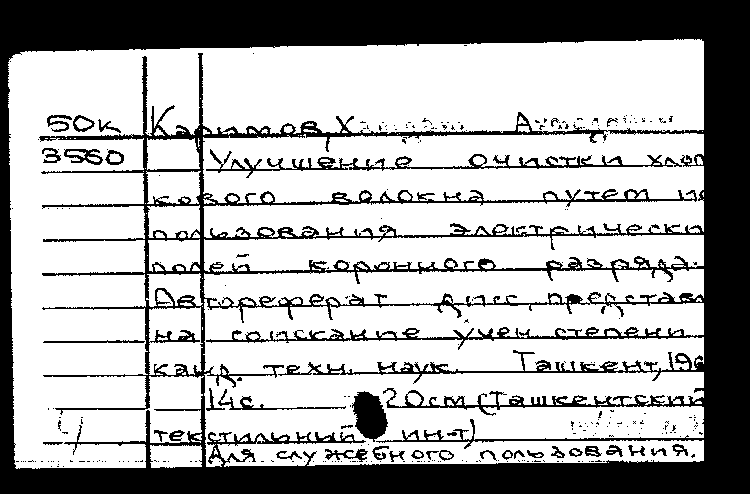 50к Каримов, Х
3560 Улучшение очистки хлоп
кового волокна путем ис
пользования электрически
полей коронного разряда.
Автореферат дисс, представл
на соискание учен степени
канд. техн. наук. Ташкент, 196
14с. 20см (Ташкентский
текстильный ин-т)
Для служебного пользования.